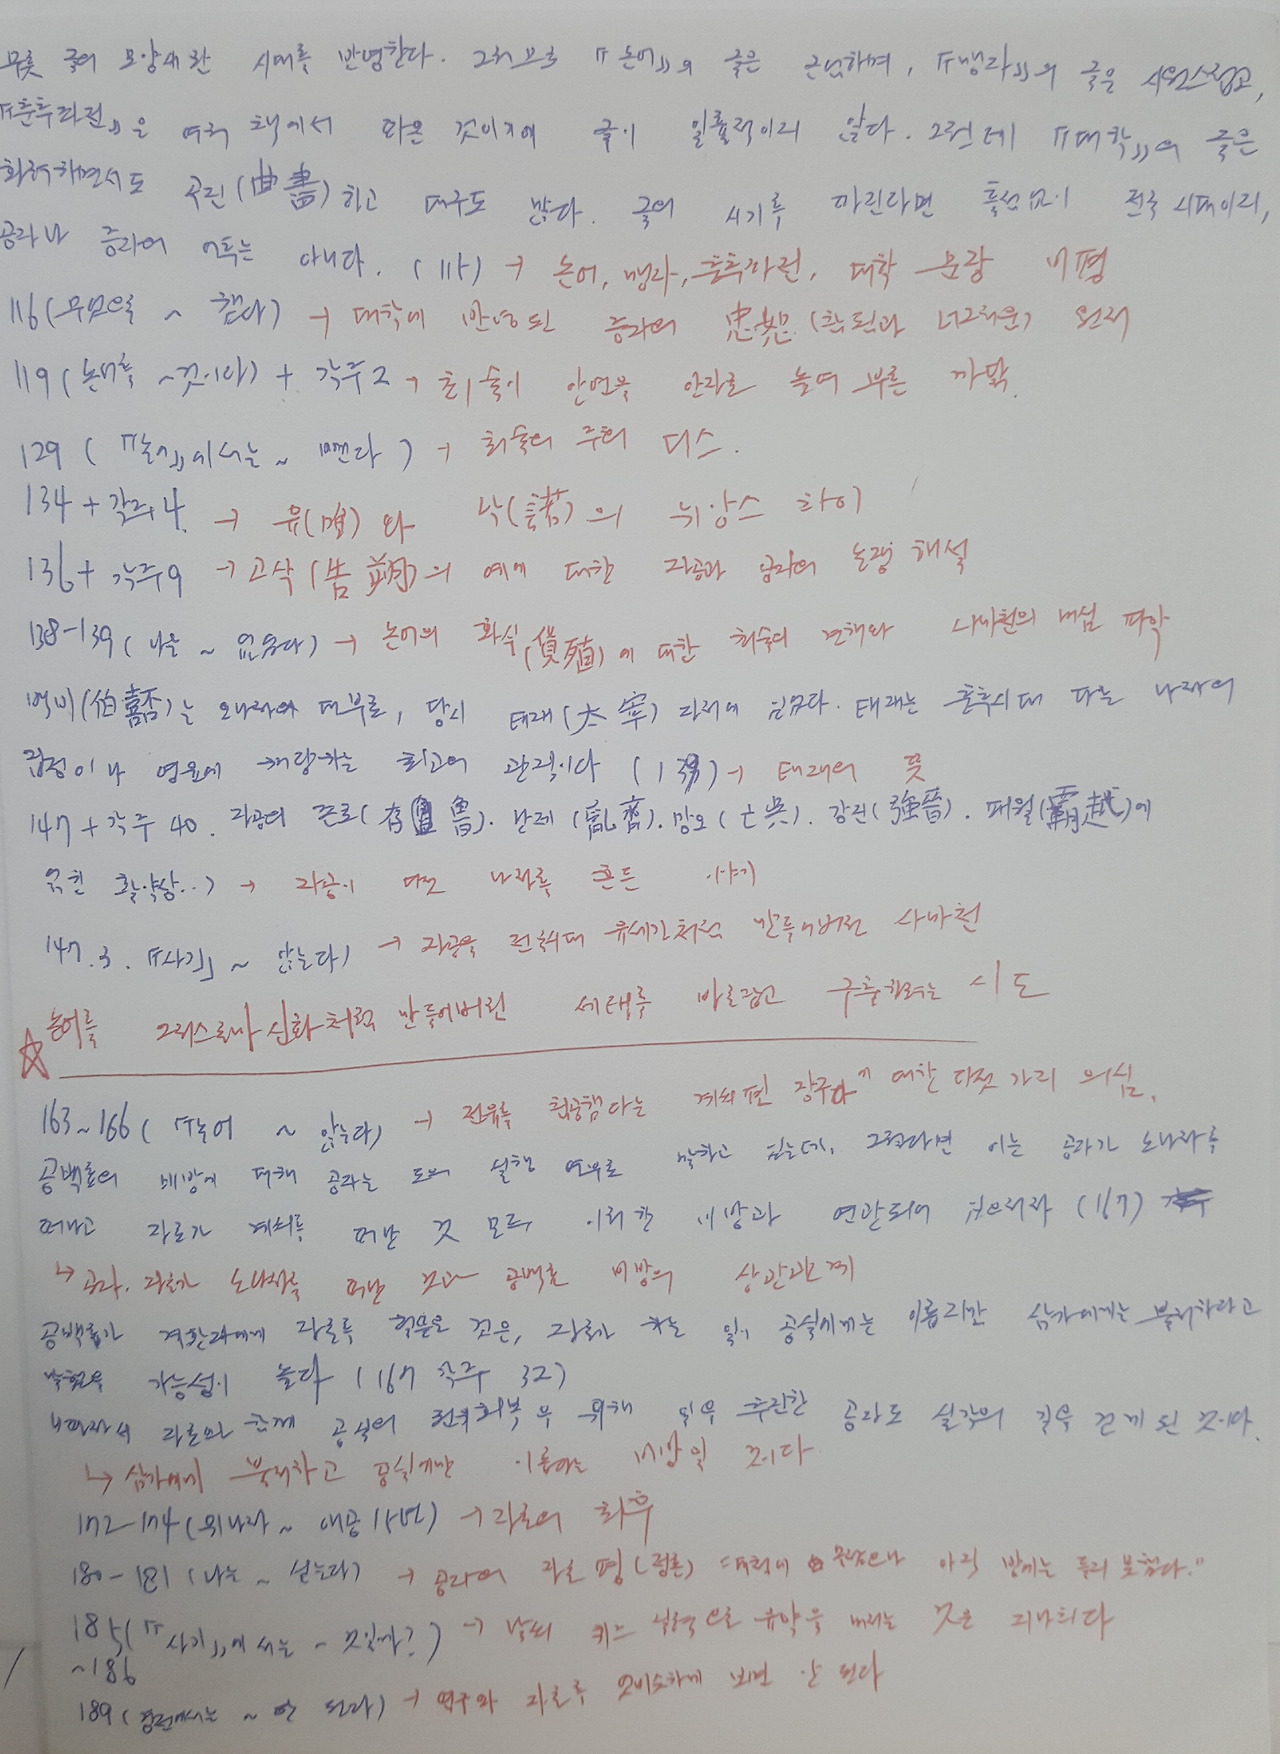 무릇 글의 모양새란 시대를 반영한다. 그러므로 『논어』의 글은 근엄하며, 『맹자』의 글은 시원스럽고,
『춘추좌전』은 여러 책에서 따온 것이기에 글이 일률적이지 않다. 그런데 『대학』의 글은
화려하면서도 곡진(曲書)하고 대구도 많다. 글의 시기를 따진다면 틀림없이 전국시대이지,
공자나 증자의 어투는 아니다. (115) → 논어, 맹자, 춘추좌전, 대학 문장 비평
116(무엇을 ~ 했다) → 대학에 반영된 증자의 忠恕(참된과 너그러운) 원리
119(논어를 ~것이다) + 각주2 → 최술이 안연을 안자로 높여 부른 까닭.
129 (『논어』에서는 ~ 뺀다) → 최술의 주희 디스.
134 + 각주4 → 유(唯)와 낙(諾)의 뉘앙스 차이
136 + 각주9 → 고삭(告朔)의 예에 대한 자공과 공자의 논쟁 해설
138-139(나는 ~ 없었다) → 논어의 화식(貨殖)에 대한 최술의 견해와 사마천의 내심 파악
백비(伯嚭)는 오나라의 대부로, 당시 태재(太宰) 자리에 있었다. 태재는 춘추시대 다른 나라의
집정이나 영윤에 해당하는 최고의 관직이다 (139) → 태재의 뜻
147 + 각주 40. 자공의 존로(存魯). 난제(亂齊). 망오(亡吳). 강진(強晉). 패월(霸越)에
얽힌 활약상..) → 자공이 여러 나라를 흔든 이야기
147.3. 『사기』 ~ 않는다) → 자공을 전국시대 유세가처럼 만들어버린 사마천
☆ 논어를 그리스로마신화처럼 만들어버린 세태를 바로잡고 구출하려는 시도
163~166(『논어 ~ 않는다) → 전유를 정벌했다는 계씨편 장구에 대한 다섯 가지 의심.
공백료의 비방에 대해 공자는 도의 실행 여부로 말하고 있는데, 그렇다면 이는 공자가 노나라를
떠나고 자로가 계씨를 떠난 것 모두 이러한 비방과 연관되어 있으리라 (167)
↳ 공자. 자로가 노나라를 떠난 것과 공백료 비방의 상관관계
공백료가 계환자에게 자로를 헐뜯은 것은, 자로가 하는 일이 공실에게는 이롭지만 삼가에게는 불리하다고
말했을 가능성이 높다 (167 각주 32)
따라서 자로와 함께 공실의 권위회복을 위해 일을 추진한 공자도 실각의 길을 걷게 된 것이다.
↳ 삼가에게 불리하고 공실에만 이롭다는 비방일 것이다.
172-174(위나라 ~ 애공 15년) → 자로의 최후
180-181(나는 ~ 싣는다) → 공자의 자로 평(정론) "대청에 올랐으나 아직 방에는 들지 못했다."
185(『사기』에서는 ~ 것일까?) → 날씨 퀴즈 실력으로 유약을 버리는 것은 지나치다
~186
189(경전에서는 ~ 안 된다) → 염구와 자로를 엇비슷하게 보면 안 된다